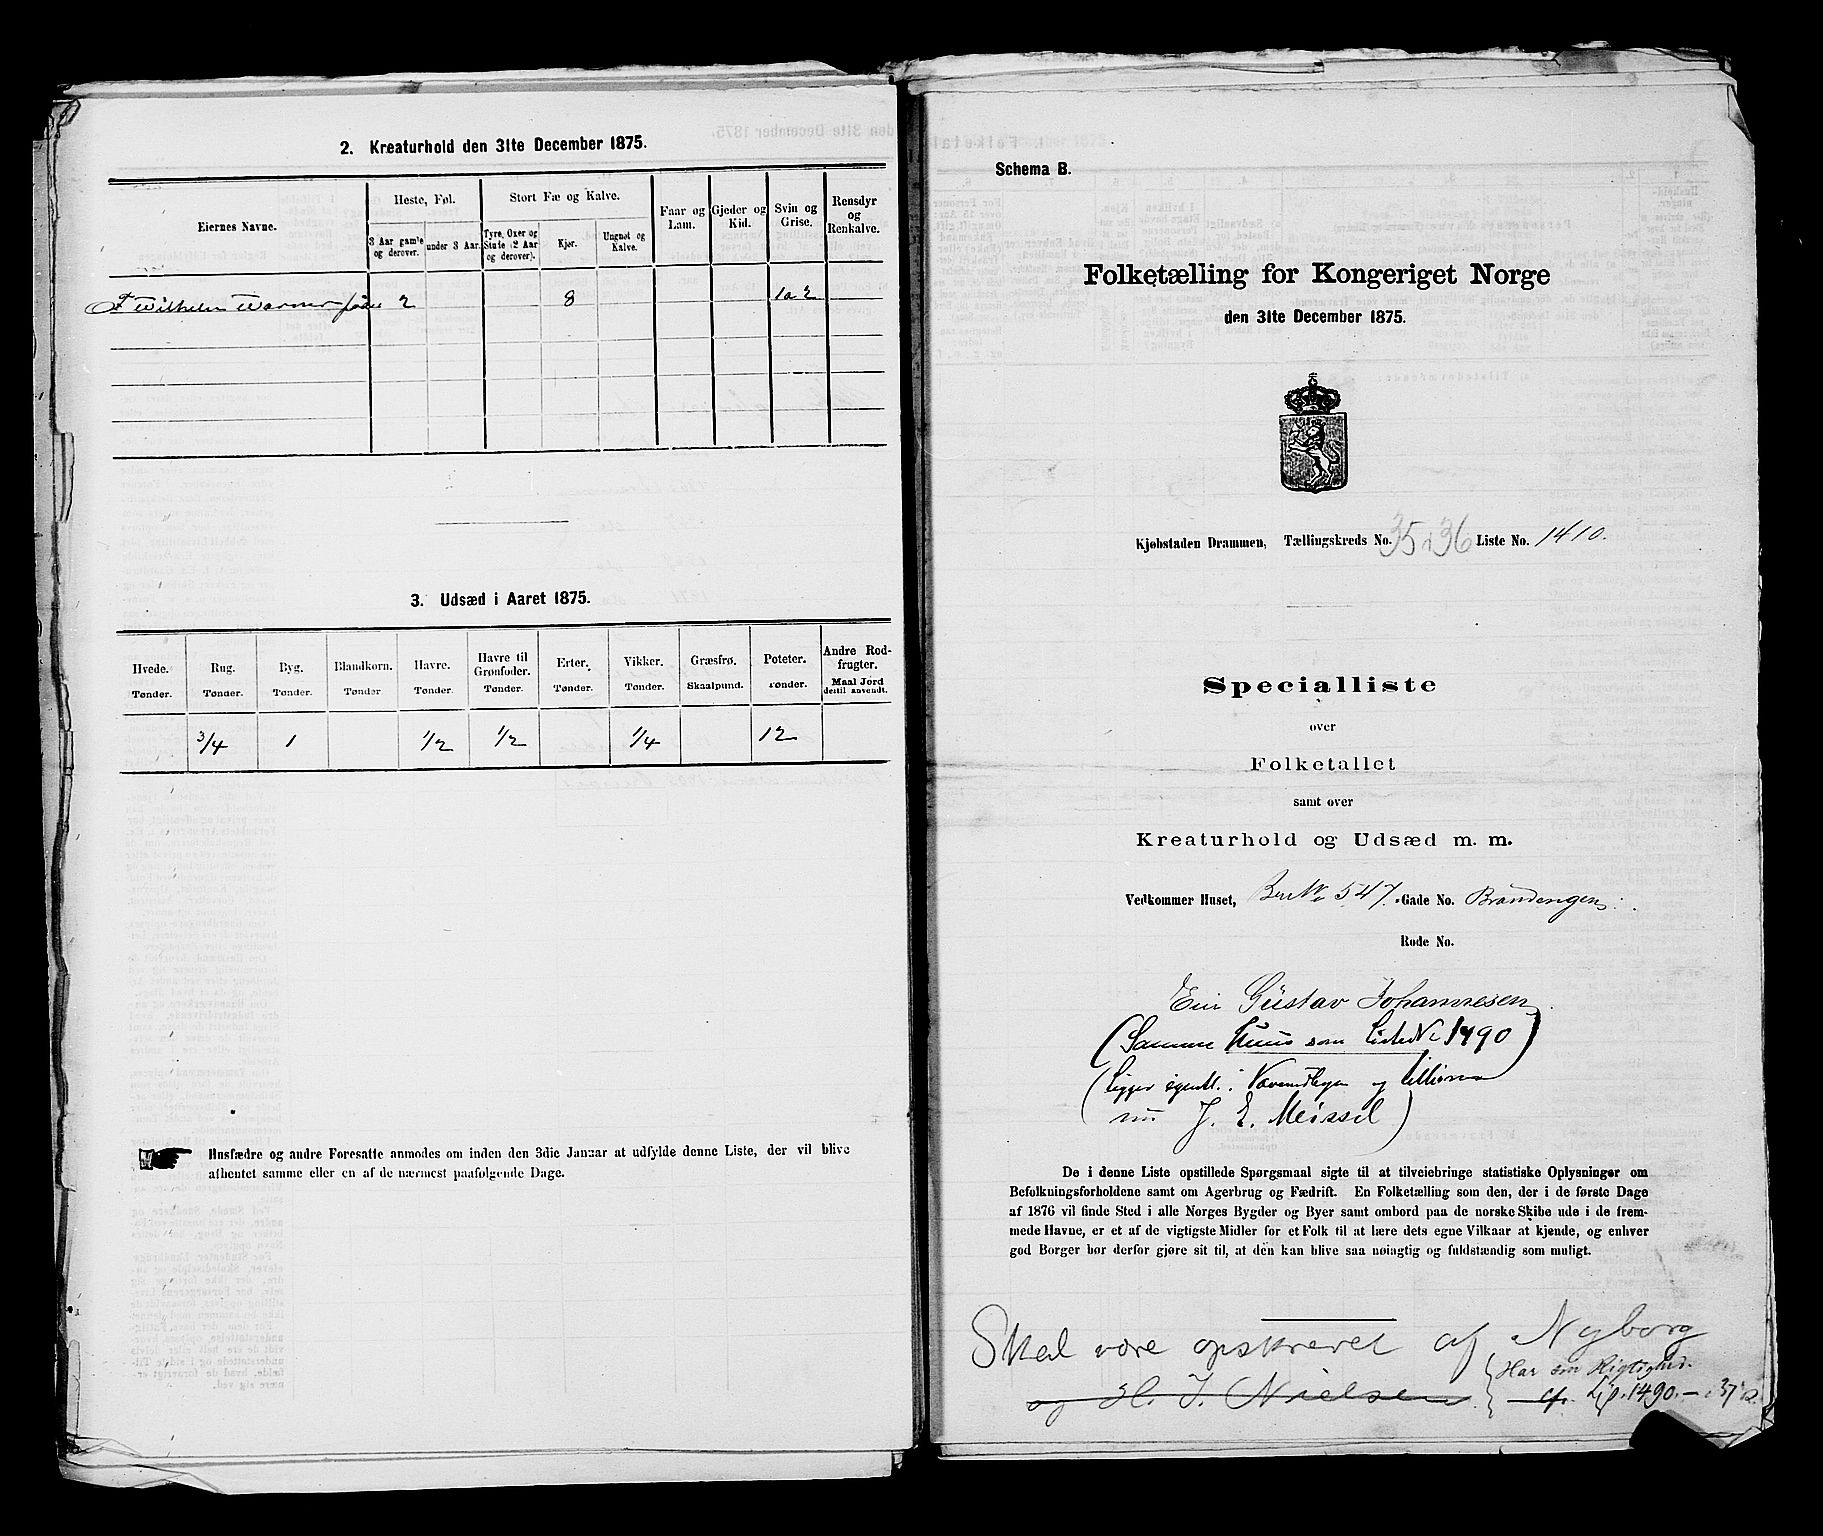 2. Kreaturhold den 31te December 1875.
Eiernes Navne.
Heste, Føl.
3 Aar gamle og derover.
under 3 Aar.
Stort Fæ og Kalve.
Tyre, Oxer og Stute (2 Aar og derover).
Kjør.
Ungnøt og Kalve.
Faar og Lam.
Gjeder og Kid.
Svin og Grise.
Rensdyr og Renkalve.
Wilhelm 2 8 1 a 2
3. Udsæd i Aaret 1875.
Hvede. Rug. Byg. Blandkorn. Havre. Havre til Grønfoder. Erter. Vikker. Græsfrø. Poteter. Andre Rodfrugter.
Tønder. Tønder. Tønder. Tønder Tønder. Tønder. Tønder. Tønder. Skaalpund. Tønder. Maal Jord dertil anvendt.
3/4 1 1/2 1/2 1/4 12
Husfædre og andre Foresatte anmodes om inden den 3die Januar at udfylde denne Liste, der vil blive
afhentet samme eller en af de nærmest paafølgende Dage.
Schema B.
Folketælling for Kongeriget Norge
den 31te December 1875.
Kjøbstaden Drammen, Tællingskreds No. 35 i 36 Liste No. 1410.
Specialliste
over
Folketallet
samt over
Kreaturhold og Udsæd m. m.
Vedkommer Huset, 547. Gade No. Brandengen
Rode No.
Gustav Johannesen.
(Samme Huus som Liste No 1490)
(Ligger egentl. i og
nu J. E. Meissel)
De i denne Liste opstillede Spørgsmaal sigte til at tilveiebringe statistiske Oplysninger om
Befolkningsforholdene samt om Agerbrug og Fædrift. En Folketælling som den, der i de første Dage
af 1876 vil finde Sted i alle Norges Bygder og Byer samt ombord paa de norske Skibe ude i de frem-
mede Havne, er et af de vigtigste Midler for et Folk til at lære dets egne Vilkaar at kjende, og enhver
god Borger bør derfor gjøre sit til, at den kan blive saa nøiagtig og fuldstændig som muligt.
Skal være opskrevet af Nyborg
og H. J. Nielsen
Har sin Rigtighed.
cf. 1490. –